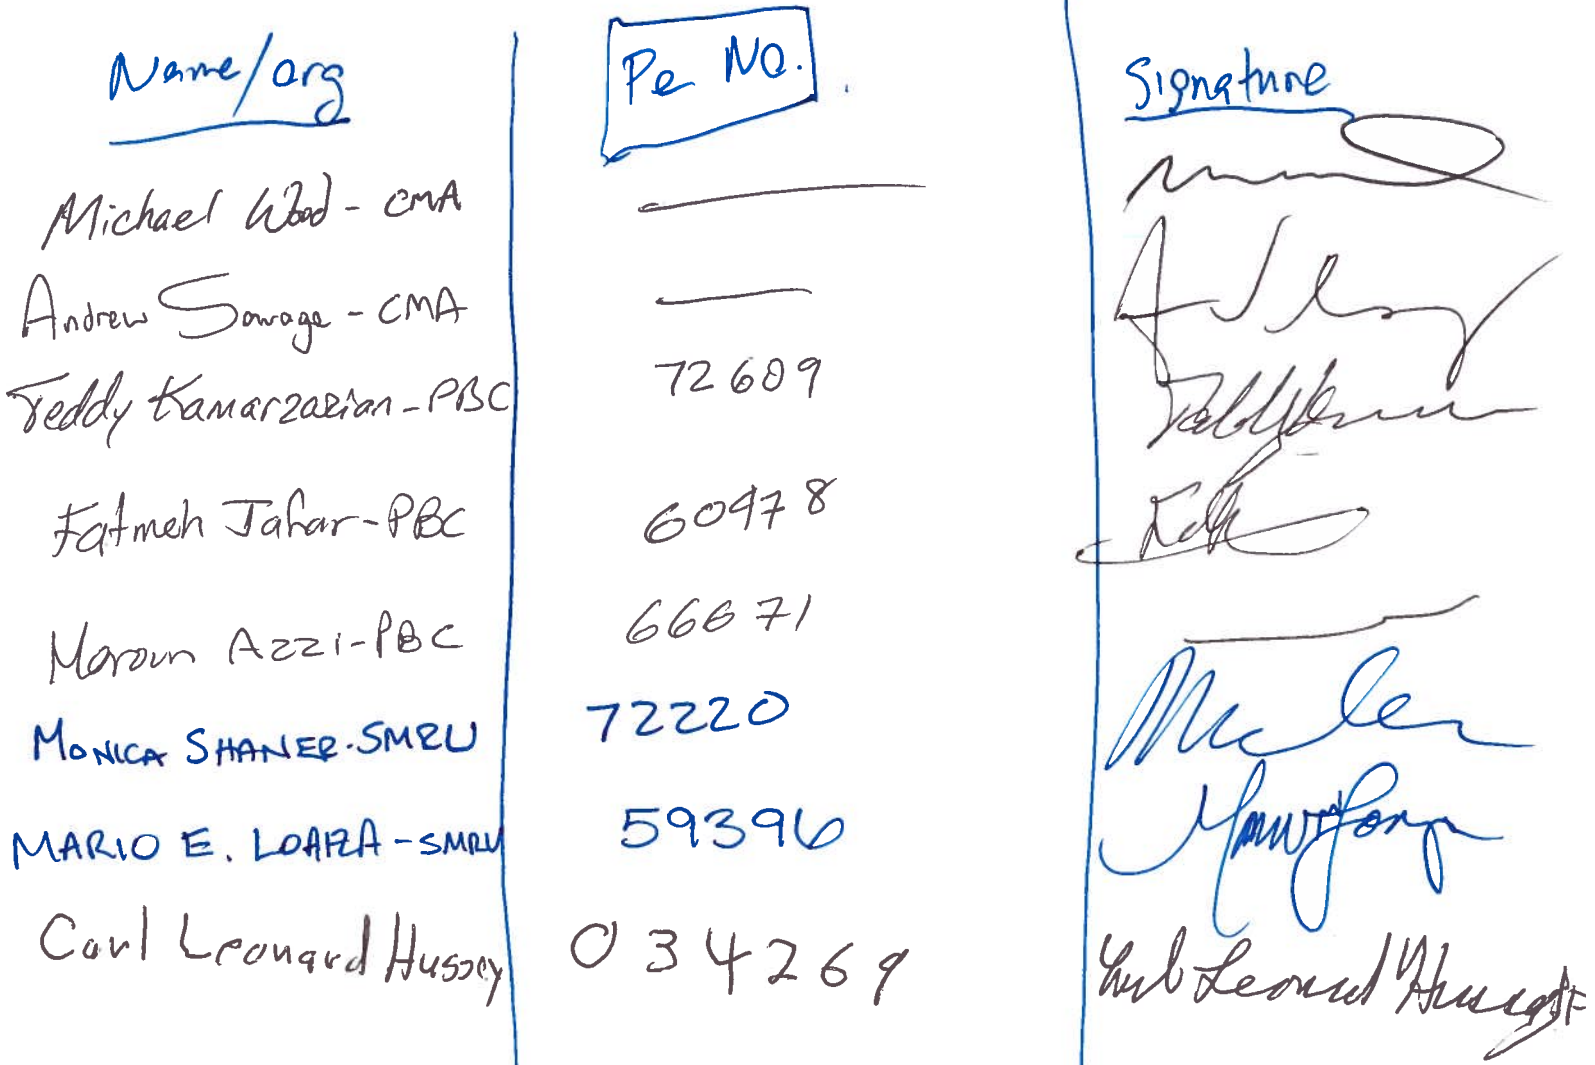 Name/org Pe No. Signature
Michael Wood - CMA
Andrew Savage - CMA
Teddy Kamarzarian - PBC 72609
Fatmeh Jafar - PBC 60478
Maroun Azzi - PBC 66671
MONICA SHANER - SMRU 72220
MARIO E. LOAIZA - SMRU 59396
Carl Leonard Hussey 034269 Carl Leonard Hussey